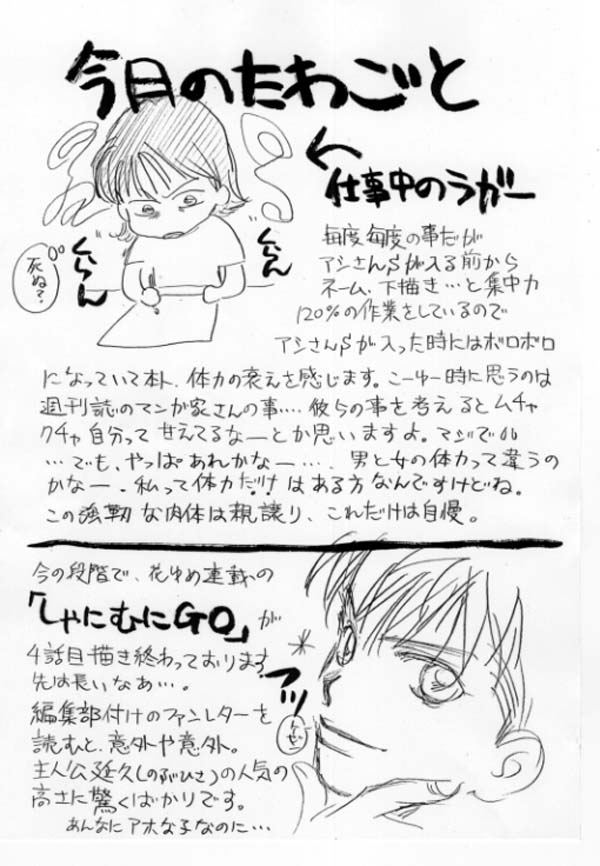 今月のたわごと
仕事中のラガー
ぐらん
ぐらん
死ぬ?
毎度毎度の事だが
アシさんSが入る前から
ネーム、下描き…と集中力
120%の作業をしているので
アシさんSが入った時にはボロボロ
になっていて本ト、体力の衰えを感じます。こーゆー時に思うのは
週刊誌のマンガ家さんの事…. 彼らの事を考えるとムチャ
クチャ自分って甘えてるなーとか思いますよ。マジで
…でも、やっぱあれかなー…. 男と女の体力って違うの
かなー. 私って体力だけはある方なんですけどね。
この強靭な肉体は親譲り、これだけは自慢。
今の段階で、花ゆめ連載の
「しゃにむにGO」が
4話目描き終わっております
先は長いなあ…。
編集部付けのファンレターを
読むと、意外や意外。
主人公延久(のぶひさ)の人気の
高さに驚くばかりです。
あんなにアホな子なのに…
フッ